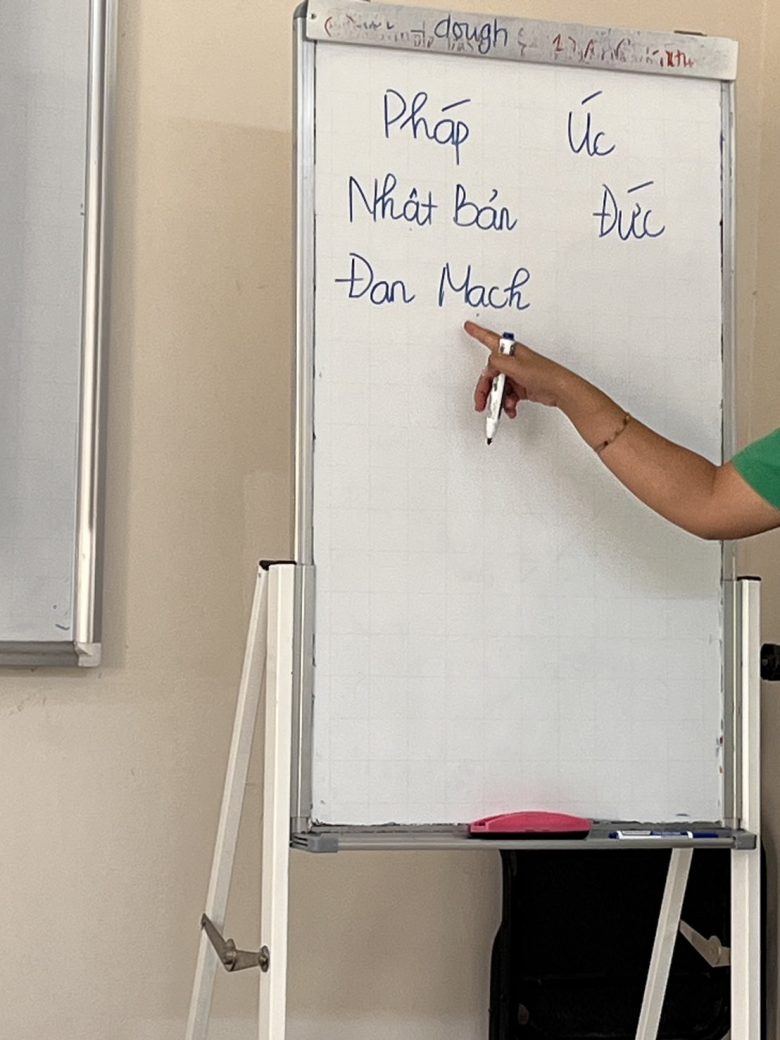 dough
Pháp Úc
Nhật Bản Đức
Đan Mạch